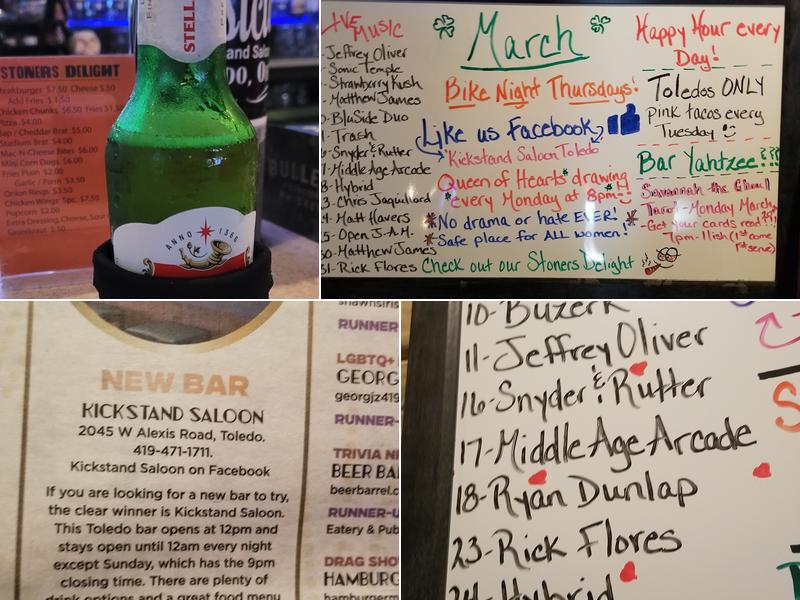 STELL
and Saloon
DO, O
STONERS DELIGHT
Cheese $.50
Add Fries $1.50
Chicken Chunks $6.50 Fries $1.
Pizza $4.00
/ Cheddar Brat $5.00
Stadium Brat $4.00
Mac-N-Cheese Bites $6.00
Mini Corn Dogs $6.00
Fries Plain $2.00
Garlic / Parm $3.50
Onion Rings $3.50
Chicken Wings 5pc. $7.50
Popcorn $2.00
Extra Dressing, Cheese, Sour
BULLE
ANNO 1366
LIVE MUSIC
-Jeffrey Oliver
-Sonic Temple
-Strawberry Kush
-Matthew James
0-BluSide Duo
1-Trash
-Snyder & Rutter
7-Middle Age Arcade
8-Hybrid
3-Chris Jaquillard
4-Matt Havers
5-Open J.A.M.
30-Matthew James
31-Rick Flores
March
Bike Night Thursdays!
Like us Facebook
"Kickstand Saloon Toledo
Queen of Hearts drawing
every Monday at 8pm!
No drama or hate EVER!
Safe place for ALL women!
Check out our Stoners Delight
Happy Hour every
Day!
Toledos ONLY
pink tacos every
Tuesday
Bar Yahtzee???
Savannah the Ghoul
Tarot-Monday March
-Get your cards read??!
7pm-11ish (1st come
1st serve)
NEW BAR
KICKSTAND SALOON
2045 W Alexis Road, Toledo.
419-471-1711.
Kickstand Saloon on Facebook
If you are looking for a new bar to try,
the clear winner is Kickstand Saloon.
This Toledo bar opens at 12pm and
stays open until 12am every night
except Sunday, which has the 9pm
closing time. There are plenty of
drink options and a great food menu
RUNNER-
LGBTQ+
GEORG
georgjz419
RUNNER-
TRIVIA NI
BEER BA
beerbarrel.c
RUNNER-U
Eatery & Pub
DRAG SHO
HAMBURG
10-Buzerk
11-Jeffrey Oliver
16-Snyder & Rutter
17-Middle Age Arcade
18-Ryan Dunlap
23-Rick Flores
24-Hybrid